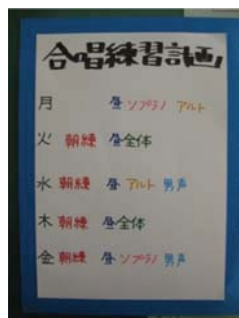 合唱練習計画
月 昼 ソプラノ アルト
火 朝練 昼全体
水 朝練 昼 アルト 男声
木 朝練 昼全体
金 朝練 昼 ソプラノ 男声